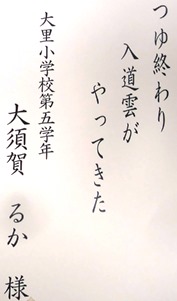 つゆ終わり
入道雲が
やってきた
大里小学校第五学年
大須賀 るか 様